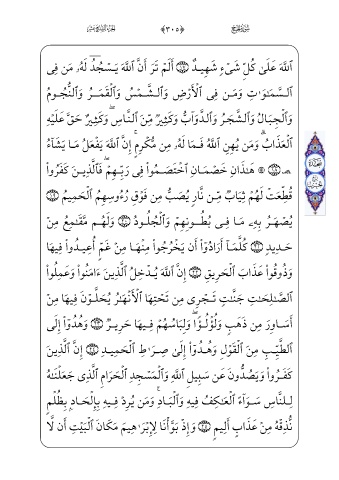 سورة الحج ﴿٣٠٥﴾ الجزء السابع عشر
ٱللَّهَ عَلَىٰ كُلِّ شَىْءٍ شَهِيدٌ ﴿١٧﴾ أَلَمْ تَرَ أَنَّ ٱللَّهَ يَسْجُدُ لَهُۥ مَن فِى
ٱلسَّمَٰوَٰتِ وَمَن فِى ٱلْأَرْضِ وَٱلشَّمْسُ وَٱلْقَمَرُ وَٱلنُّجُومُ
وَٱلْجِبَالُ وَٱلشَّجَرُ وَٱلدَّوَآبُّ وَكَثِيرٌ مِّنَ ٱلنَّاسِ ۖ وَكَثِيرٌ حَقَّ عَلَيْهِ
ٱلْعَذَابُ ۗ وَمَن يُهِنِ ٱللَّهُ فَمَا لَهُۥ مِن مُّكْرِمٍ ۚ إِنَّ ٱللَّهَ يَفْعَلُ مَا يَشَآءُ
۩ ﴿١٨﴾ ۞ هَٰذَانِ خَصْمَانِ ٱخْتَصَمُوا۟ فِى رَبِّهِمْ ۖ فَٱلَّذِينَ كَفَرُوا۟
قُطِّعَتْ لَهُمْ ثِيَابٌ مِّن نَّارٍ يُصَبُّ مِن فَوْقِ رُءُوسِهِمُ ٱلْحَمِيمُ ﴿١٩﴾
يُصْهَرُ بِهِۦ مَا فِى بُطُونِهِمْ وَٱلْجُلُودُ ﴿٢٠﴾ وَلَهُم مَّقَٰمِعُ مِنْ
حَدِيدٍ ﴿٢١﴾ كُلَّمَآ أَرَادُوٓا۟ أَن يَخْرُجُوا۟ مِنْهَا مِنْ غَمٍّ أُعِيدُوا۟ فِيهَا
وَذُوقُوا۟ عَذَابَ ٱلْحَرِيقِ ﴿٢٢﴾ إِنَّ ٱللَّهَ يُدْخِلُ ٱلَّذِينَ ءَامَنُوا۟ وَعَمِلُوا۟
ٱلصَّٰلِحَٰتِ جَنَّٰتٍ تَجْرِى مِن تَحْتِهَا ٱلْأَنْهَٰرُ يُحَلَّوْنَ فِيهَا مِنْ
أَسَاوِرَ مِن ذَهَبٍ وَلُؤْلُؤًا ۖ وَلِبَاسُهُمْ فِيهَا حَرِيرٌ ﴿٢٣﴾ وَهُدُوٓا۟ إِلَى
ٱلطَّيِّبِ مِنَ ٱلْقَوْلِ وَهُدُوٓا۟ إِلَىٰ صِرَٰطِ ٱلْحَمِيدِ ﴿٢٤﴾ إِنَّ ٱلَّذِينَ
كَفَرُوا۟ وَيَصُدُّونَ عَن سَبِيلِ ٱللَّهِ وَٱلْمَسْجِدِ ٱلْحَرَامِ ٱلَّذِى جَعَلْنَٰهُ
لِلنَّاسِ سَوَآءً ٱلْعَٰكِفُ فِيهِ وَٱلْبَادِ ۚ وَمَن يُرِدْ فِيهِ بِإِلْحَادٍۭ بِظُلْمٍ
نُّذِقْهُ مِنْ عَذَابٍ أَلِيمٍ ﴿٢٥﴾ وَإِذْ بَوَّأْنَا لِإِبْرَٰهِيمَ مَكَانَ ٱلْبَيْتِ أَن لَّا